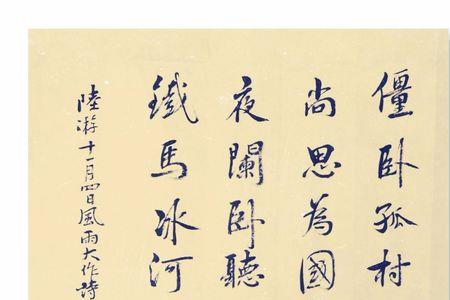 僵卧孤村
尚思為國
夜闌卧聽
鐵馬冰河
陸游十一月四日風雨大作詩